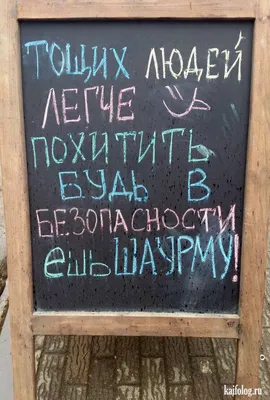 ТОЩИХ ЛЮДЕЙ
ЛЕГЧЕ
ПОХИТИТЬ
БУДЬ В
БЕЗОПАСНОСТИ
ешь ШАУРМУ!
kaifolog.ru